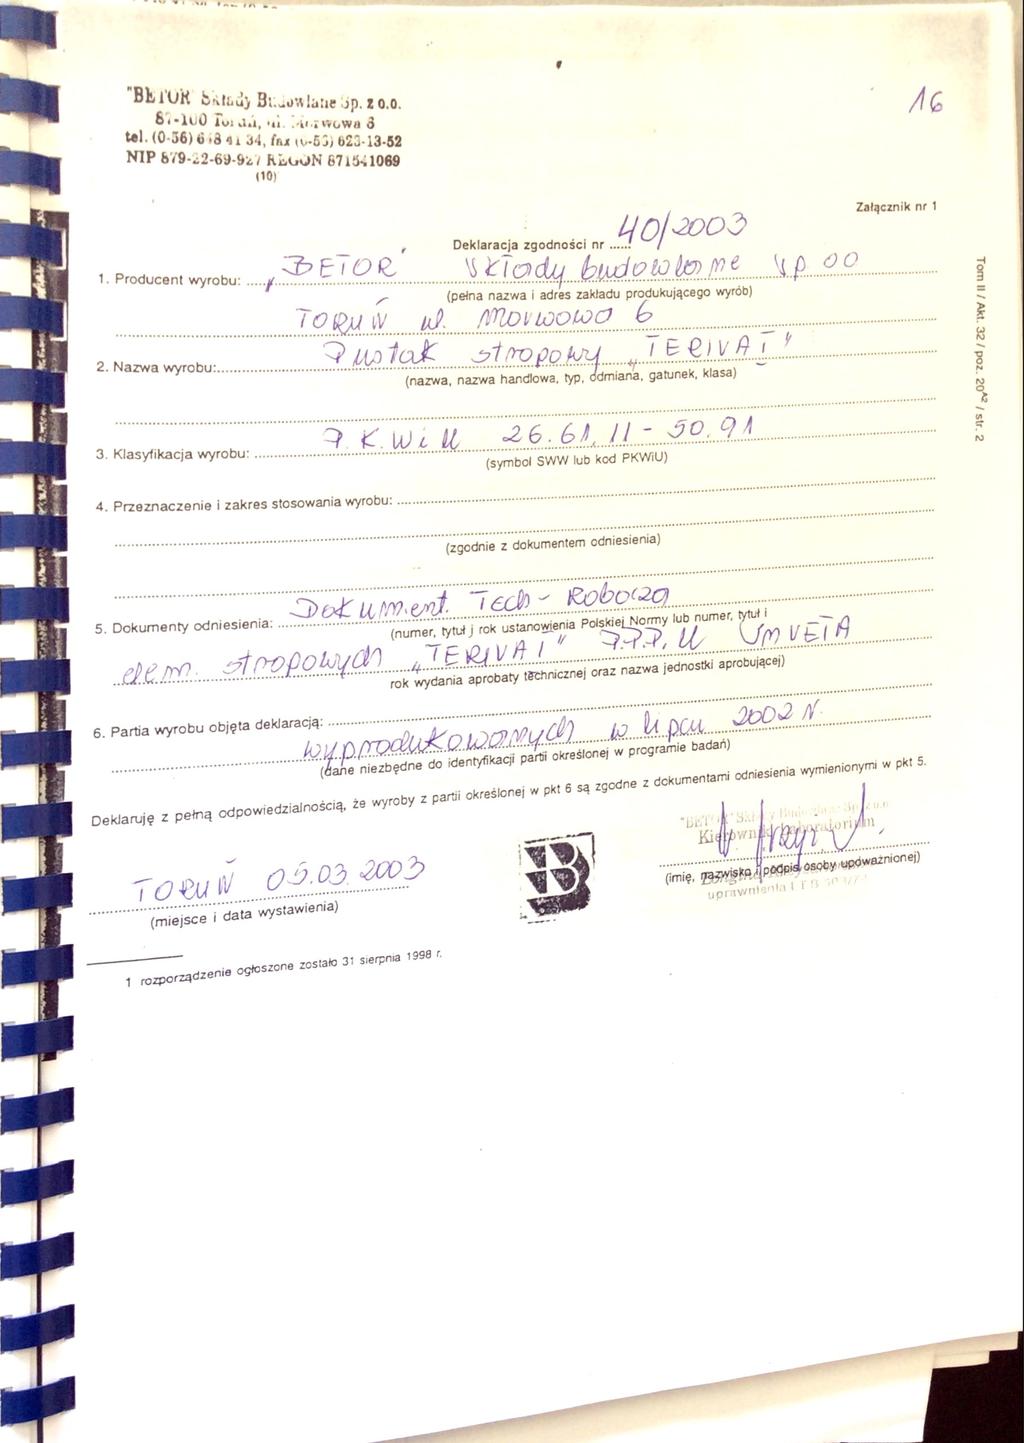 "BETOR" Składy Budowlane Sp. z o.o.
87-100 Toruń, ul. Morwowa 8
tel. (0-56) 648 41 34, fax (0-56) 623-13-52
NIP 879-22-69-927 REGON 871541069
(10)
16
Załącznik nr 1
Deklaracja zgodności nr ...... 40/2003
1. Producent wyrobu: „BETOR" Składy budowlane sp. oo
(pełna nazwa i adres zakładu produkującego wyrób)
TORUŃ ul. Morwowa 6
2. Nazwa wyrobu: Pustak stropowy „TERIVA I"
(nazwa, nazwa handlowa, typ, odmiana, gatunek, klasa)
3. Klasyfikacja wyrobu: P.K.WiU 26.61.11-50.91
(symbol SWW lub kod PKWiU)
4. Przeznaczenie i zakres stosowania wyrobu:
(zgodnie z dokumentem odniesienia)
5. Dokumenty odniesienia: Dokument. Tech - Robocza
(numer, tytuł j rok ustanowienia Polskiej Normy lub numer, tytuł i
elem. stropowych „TERIVA I" P.P.P.U
rok wydania aprobaty technicznej oraz nazwa jednostki aprobującej)
6. Partia wyrobu objęta deklaracją:
wyprodukowanych w lipcu 2002 r.
(dane niezbędne do identyfikacji partii określonej w programie badań)
Deklaruję z pełną odpowiedzialnością, że wyroby z partii określonej w pkt 6 są zgodne z dokumentami odniesienia wymienionymi w pkt 5.
Kierownik Laboratorium
TORUŃ 05.03.2003
(miejsce i data wystawienia)
(imię, nazwisko i podpis osoby upoważnionej)
uprawnienia
B
1 rozporządzenie ogłoszone zostało 31 sierpnia 1998 r.
Tom II / Akt. 32 / poz. 20A2 / str. 2